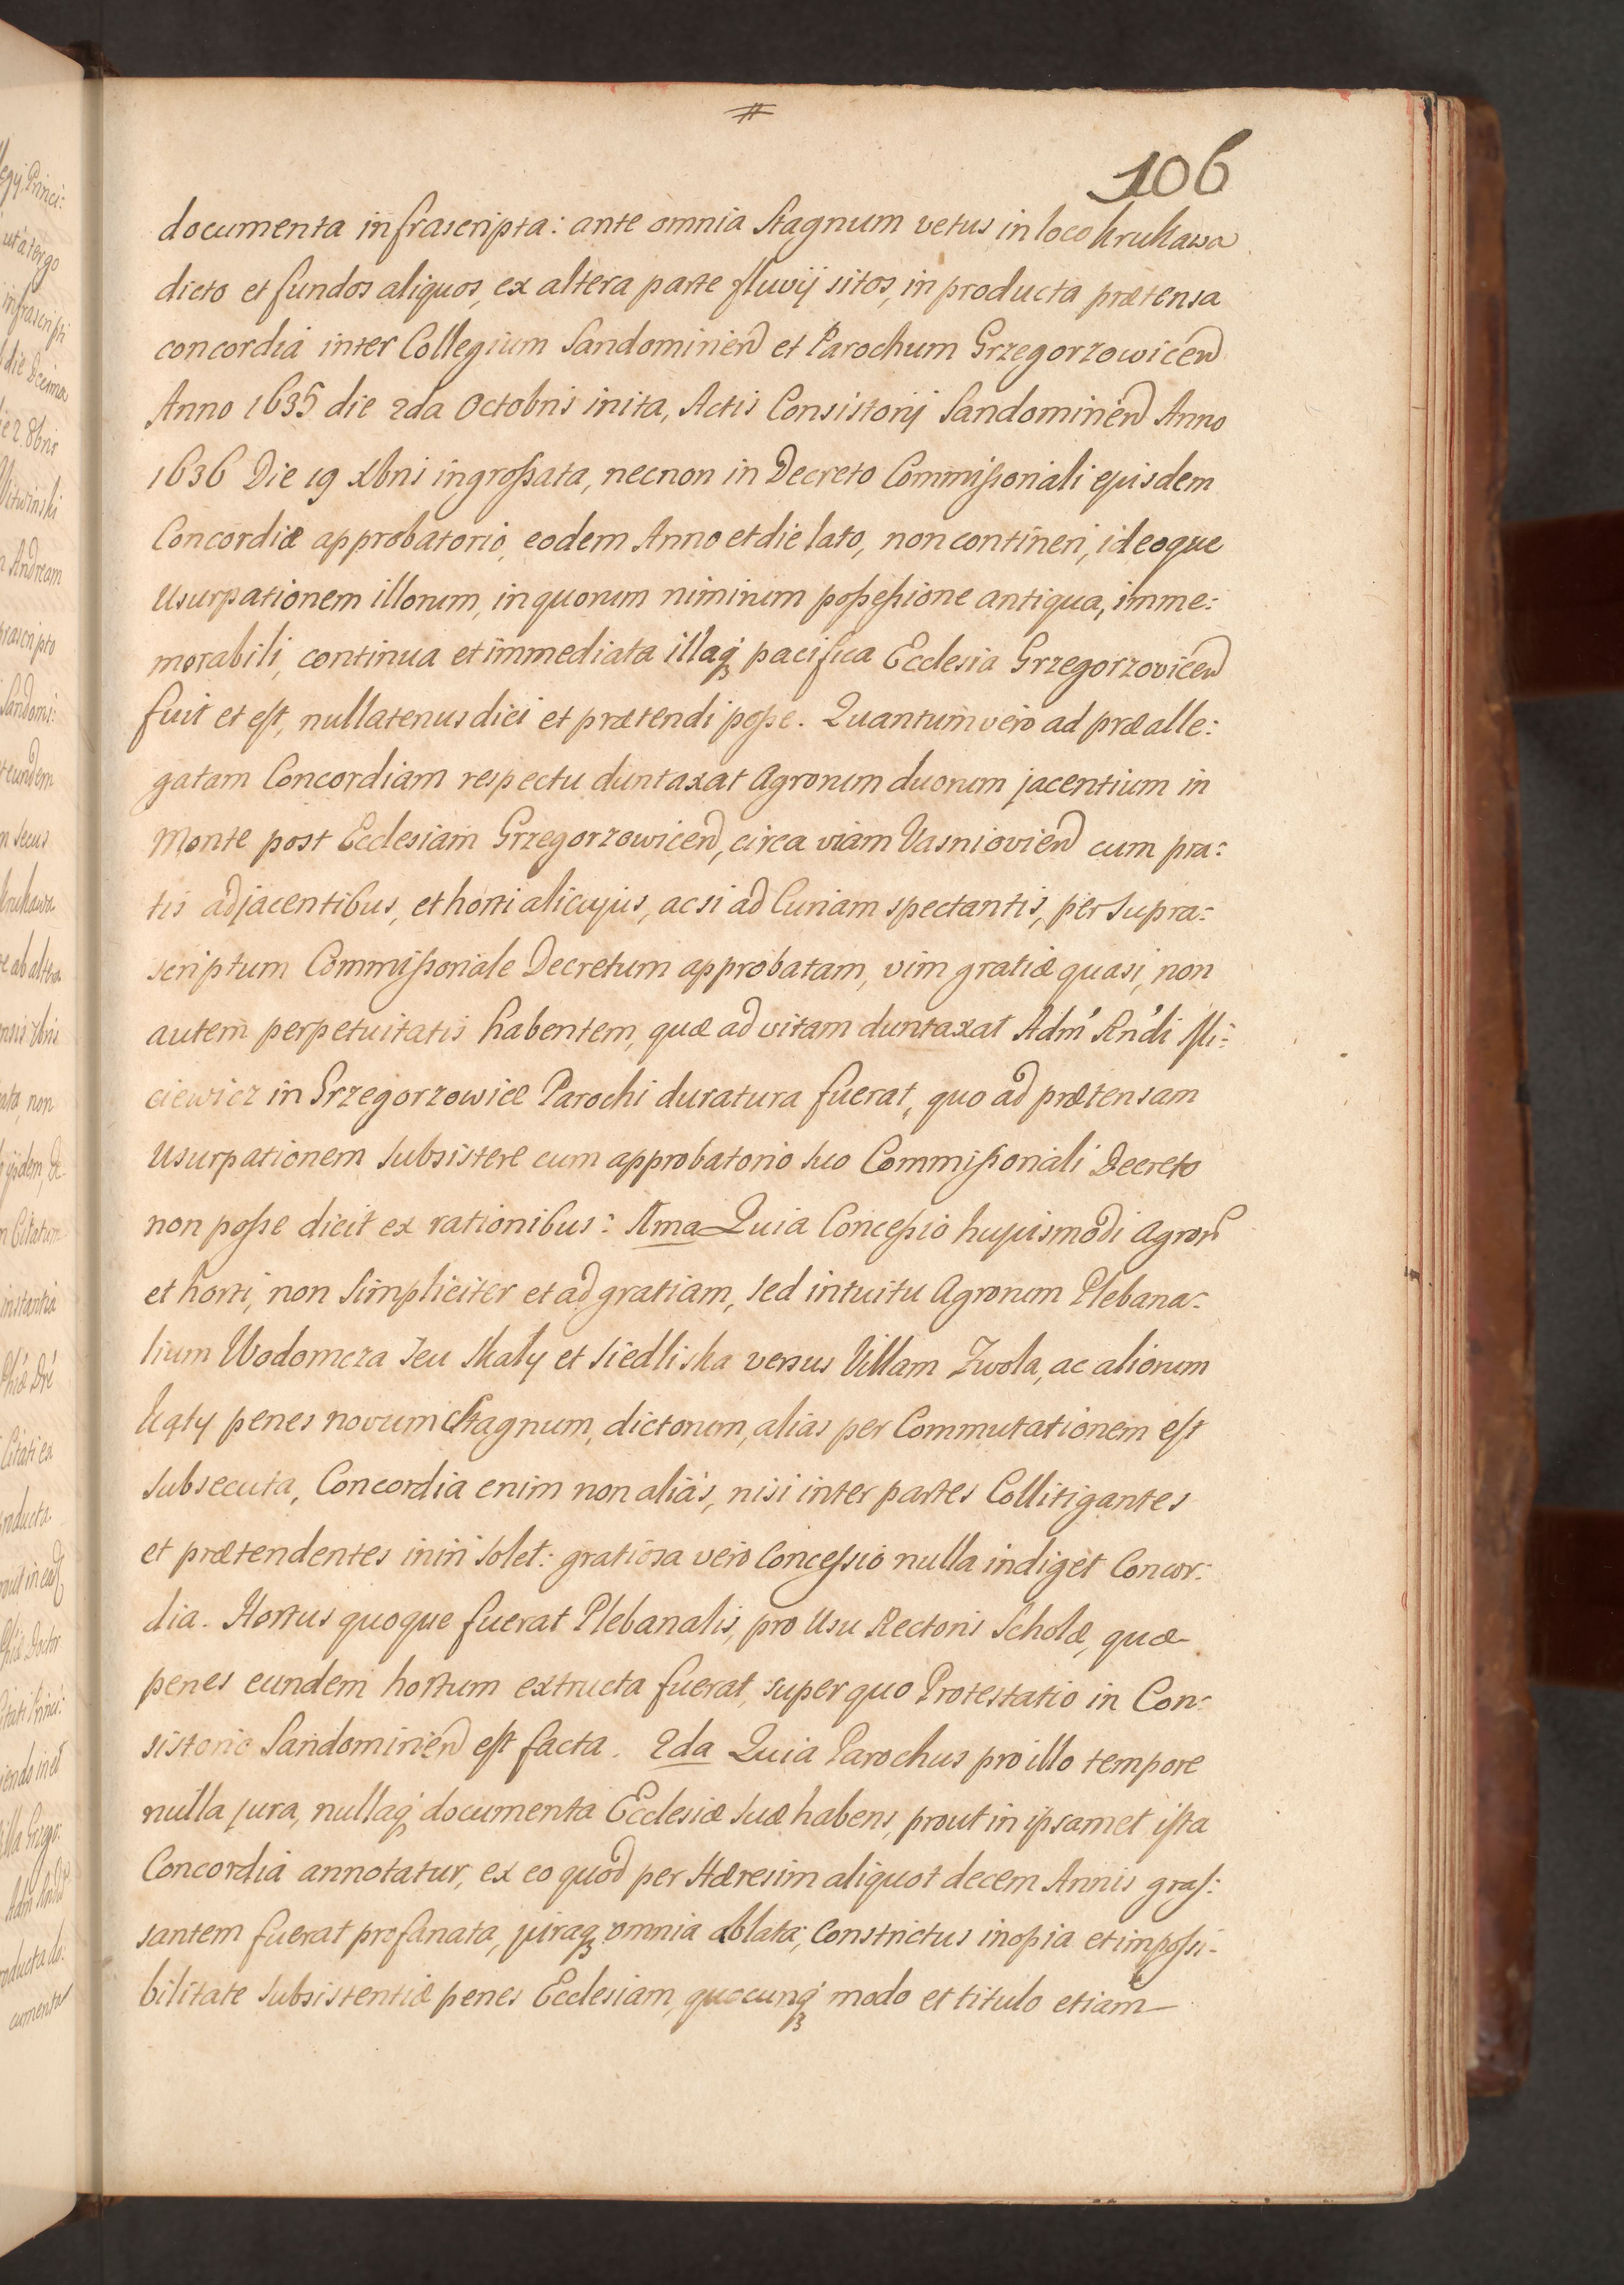 106
documenta infrascripta: ante omnia Stagnum vetus in loco Krukawa
dicto et fundos aliquos, ex altera parte fluvij sitos, in producta prætensa
concordia inter Collegium Sandominen et Parochum Grzegorzowicen
Anno 1635 die 2da Octobris inita, Actis Consistorij Sandominen Anno
1636 Die 19 Xbris ingroßata, necnon in Decreto Commißionali ejusdem
Concordiæ approbatorio, eodem Anno et die lato, non contineri, ideoque
Usurpationem illorum, in quorum nimirum poßeßione antiqua, imme:
morabili, continua et immediata illaq3 pacifica Ecclesia Grzegorzovicen
fuit et est, nullatenus dici et prætendi poße. Quantum vero ad præalle:
gatam Concordiam respectu duntaxat Agrorum duorum jacentium in
Monte post Ecclesiam Grzegorzowicen, circa viam Vasniovien cum pra:
tis adjacentibus, et horti alicujus, ac si ad Curiam spectantis, per supra:
scriptum Commißionale Decretum approbatam, vim gratiæ quasi, non
autem perpetuitatis habentem, quæ ad vitam duntaxat Adm' Rn'di
ciewicz in Grzegorzowice Parochi duratura fuerat, quo ad prætensam
Usurpationem subsistere cum approbatorio suo Commißionali Decreto
non poße dicit ex rationibus: Ima Quia Conceßio hujusmodi Agror
et horti, non simpliciter et ad gratiam, sed intuitu Agrorum Plebana:
lium Wodomcza seu Skaly et Siedliska versus Villam Zwola, ac aliorum
Kąty penes novum Stagnum, dictorum, alias per Commutationem est
subsecuta, Concordia enim non aliàs, nisi inter partes Collitigantes
et prætendentes iniri solet: gratiosa vero Conceßio nulla indiget Concor:
dia. Hortus quoque fuerat Plebanalis, pro Usu Rectoris Scholæ, quæ
penes eundem hortum extructa fuerat, super quo Protestatio in Con:
sistorio Sandomirien est facta. 2da Quia Parochus pro illo tempore
nulla jura, nullaq3 documenta Ecclesiæ suæ habens, prout in ipsamet ista
Concordia annotatur, ex eo quod per Hæresim aliquot decem Annis gras:
santem fuerat profanata, juraq3 omnia ablata; Constrictus inopia et impoßi:
bilitate subsistentiæ penes Ecclesiam, quocunq3 modo et titulo etiam